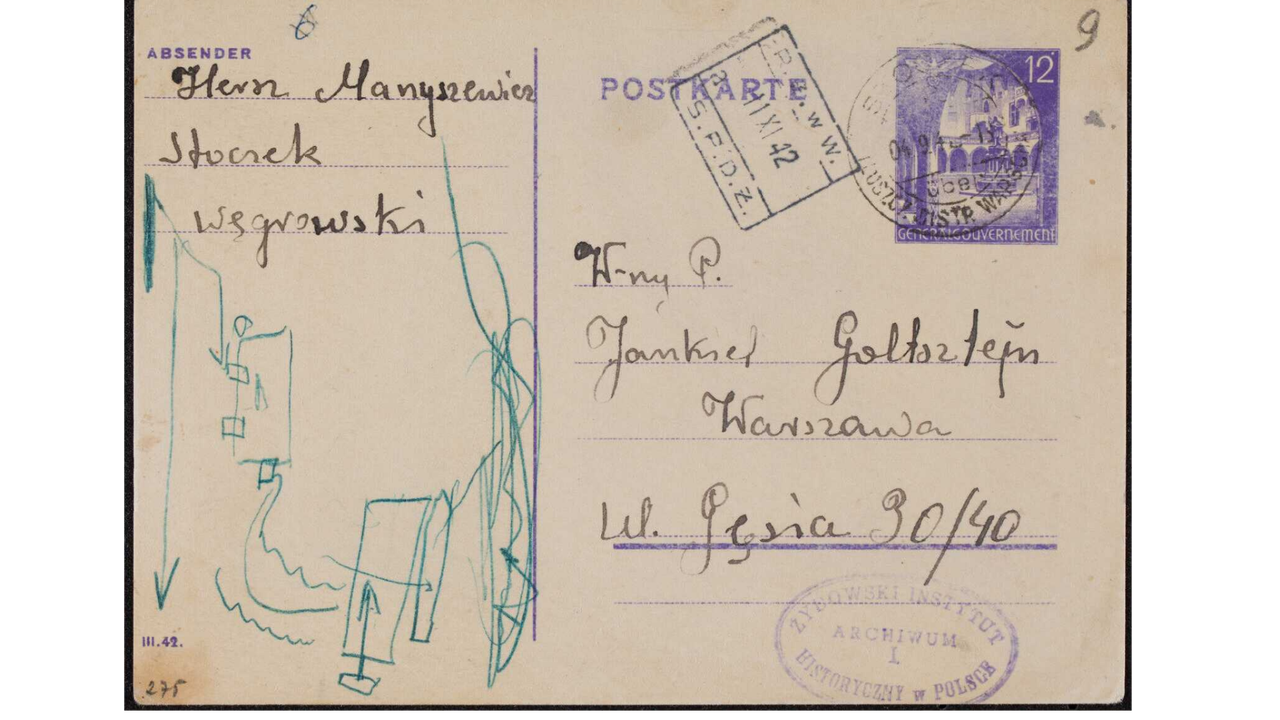 6
9
ABSENDER
Hersz Manyszewicz
Stoczek
Węgrowski
POSTKARTE
R.Ż.w W.
11 XI 42
S.P.D.Z.
12
über
DISTR. WARSCH
GENERALGOUVERNEMENT
W-ny P.
Jankiel Goltsztejn
Warszawa
ul. Gęsia 30/40
ŻYDOWSKI INSTYTUT
ARCHIWUM
I
HISTORYCZNY w POLSCE
III.42.
275